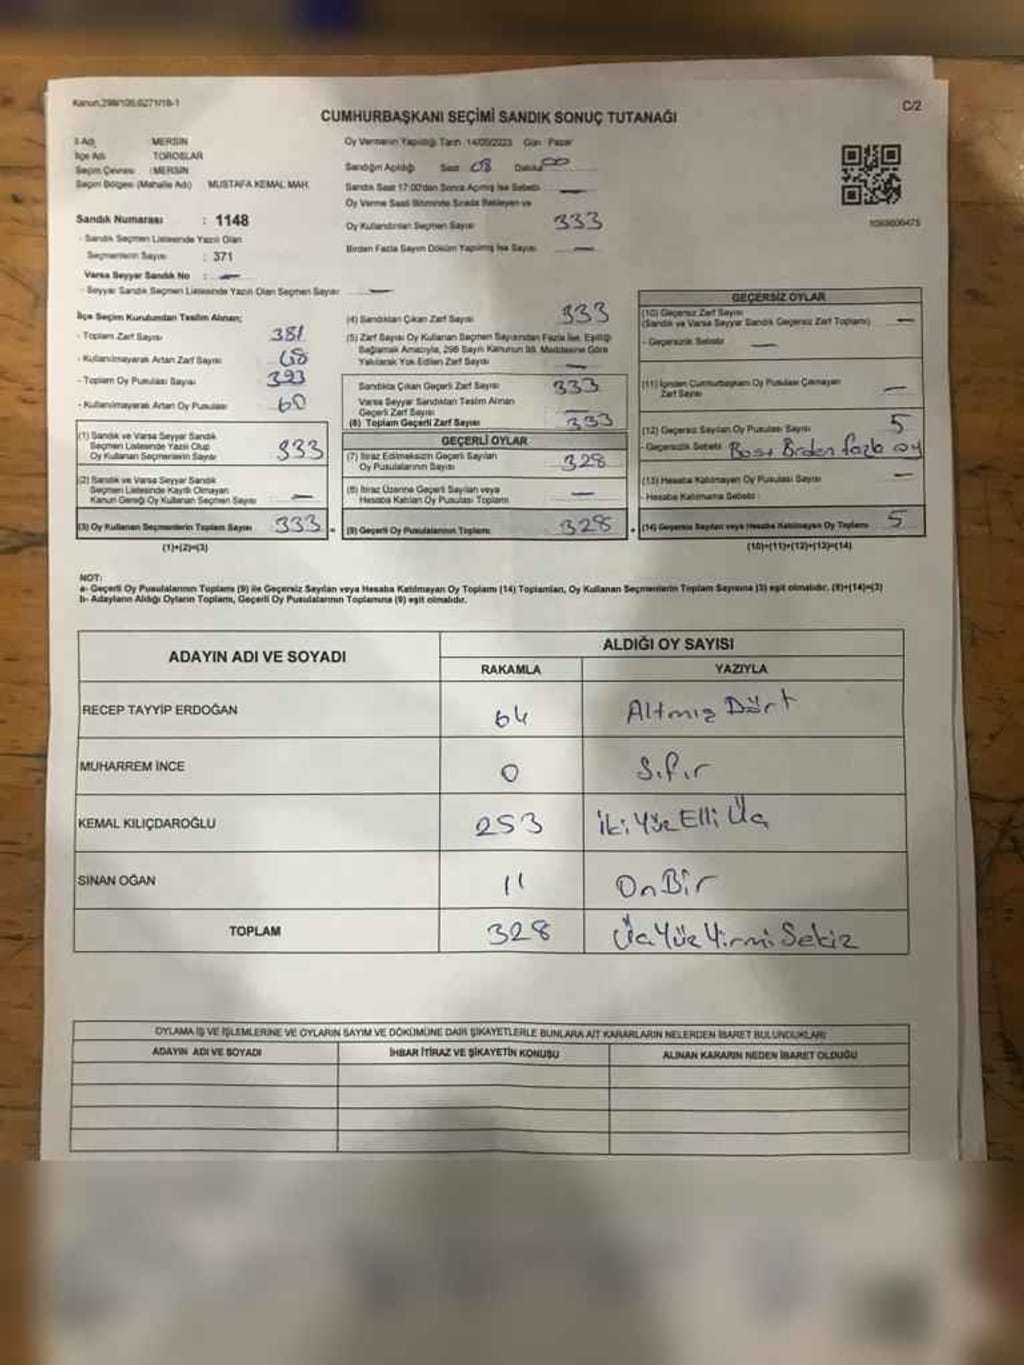 Kanun.298/105.6271/18-1
C/2
CUMHURBAŞKANI SEÇİMİ SANDIK SONUÇ TUTANAĞI
İl Adı : MERSİN
İlçe Adı : TOROSLAR
Seçim Çevresi : MERSİN
Seçim Bölgesi (Mahalle Adı) MUSTAFA KEMAL MAH.
Sandık Numarası : 1148
- Sandık Seçmen Listesinde Yazılı Olan
Seçmenlerin Sayısı : 371
Varsa Seyyar Sandık No : —
- Seyyar Sandık Seçmen Listesinde Yazılı Olan Seçmen Sayısı: —
Oy Vermenin Yapıldığı Tarih 14/05/2023 Gün: Pazar
Sandığın Açıldığı Saat 08 Dakika 00
Sandık Saat 17:00'den Sonra Açılmış İse Sebebi —
Oy Verme Saati Bitiminde Sırada Bekleyen ve
Oy Kullandırılan Seçmen Sayısı 333
Birden Fazla Sayım Döküm Yapılmış İse Sayısı —
1093600475
İlçe Seçim Kurulundan Teslim Alınan;
- Toplam Zarf Sayısı 381
- Kullanılmayarak Artan Zarf Sayısı
- Toplam Oy Pusulası Sayısı 393
- Kullanılmayarak Artan Oy Pusulası 60
(1) Sandık ve Varsa Seyyar Sandık
Seçmen Listesinde Yazılı Olup
Oy Kullanan Seçmenlerin Sayısı 333
(2) Sandık ve Varsa Seyyar Sandık
Seçmen Listesinde Kayıtlı Olmayan
Kanun Gereği Oy Kullanan Seçmen Sayısı —
(3) Oy Kullanan Seçmenlerin Toplam Sayısı 333 =
(1)+(2)=(3)
(4) Sandıktan Çıkan Zarf Sayısı 333
(5) Zarf Sayısı Oy Kullanan Seçmen Sayısından Fazla İse, Eşitliği
Sağlamak Amacıyla, 298 Sayılı Kanunun 98. Maddesine Göre
Yakılarak Yok Edilen Zarf Sayısı —
Sandıkta Çıkan Geçerli Zarf Sayısı 333
Varsa Seyyar Sandıktan Teslim Alınan
Geçerli Zarf Sayısı —
(6) Toplam Geçerli Zarf Sayısı 333
GEÇERLİ OYLAR
(7) İtiraz Edilmeksizin Geçerli Sayılan
Oy Pusulalarının Sayısı 328
(8) İtiraz Üzerine Geçerli Sayılan veya
Hesaba Katılan Oy Pusulası Toplamı —
(9) Geçerli Oy Pusulalarının Toplamı 328 +
GEÇERSİZ OYLAR
(10) Geçersiz Zarf Sayısı
(Sandık ve Varsa Seyyar Sandık Geçersiz Zarf Toplamı) —
- Geçersizlik Sebebi : —
(11) İçinden Cumhurbaşkanı Oy Pusulası Çıkmayan
Zarf Sayısı —
(12) Geçersiz Sayılan Oy Pusulası Sayısı 5
- Geçersizlik Sebebi : Boş Birden fazla oy
(13) Hesaba Katılmayan Oy Pusulası Sayısı —
- Hesaba Katılmama Sebebi :
(14) Geçersiz Sayılan veya Hesaba Katılmayan Oy Toplamı 5
(10)+(11)+(12)+(13)=(14)
NOT:
a- Geçerli Oy Pusulalarının Toplamı (9) ile Geçersiz Sayılan veya Hesaba Katılmayan Oy Toplamı (14) Toplamları, Oy Kullanan Seçmenlerin Toplam Sayısına (3) eşit olmalıdır. (9)+(14)=(3)
b- Adayların Aldığı Oyların Toplamı, Geçerli Oy Pusulalarının Toplamına (9) eşit olmalıdır.
ADAYIN ADI VE SOYADI ALDIĞI OY SAYISI
RAKAMLA YAZIYLA
RECEP TAYYİP ERDOĞAN 64 Altmış Dört
MUHARREM İNCE 0 Sıfır
KEMAL KILIÇDAROĞLU 253 İki Yüz Elli Üç
SİNAN OĞAN 11 On Bir
TOPLAM 328 Üç Yüz Yirmi Sekiz
OYLAMA İŞ VE İŞLEMLERİNE VE OYLARIN SAYIM VE DÖKÜMÜNE DAİR ŞİKAYETLERLE BUNLARA AİT KARARLARIN NELERDEN İBARET BULUNDUKLARI
ADAYIN ADI VE SOYADI İHBAR İTİRAZ VE ŞİKAYETİN KONUSU ALINAN KARARIN NEDEN İBARET OLDUĞU